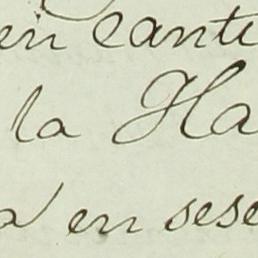 en canti
la Ha
a en sese